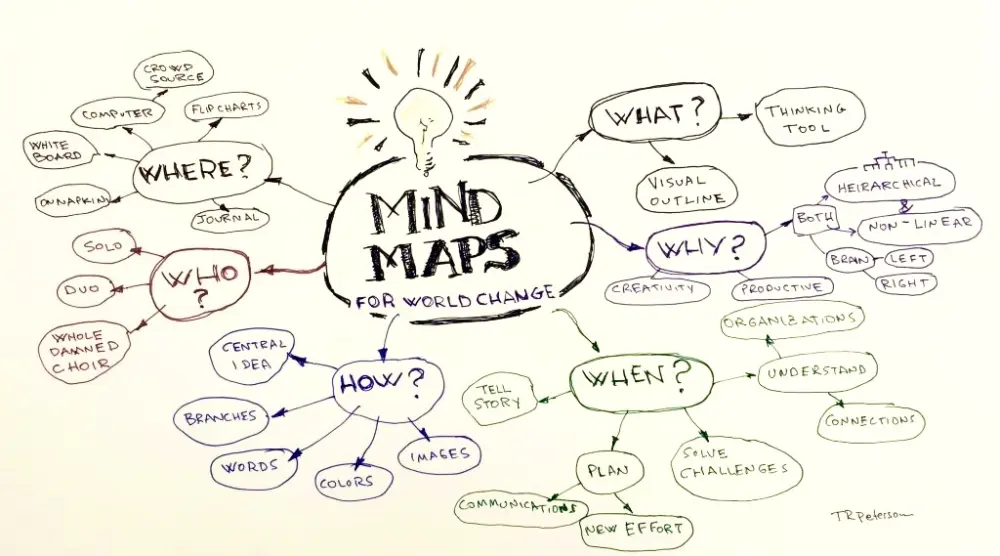 MIND
MAPS
FOR WORLD CHANGE
WHAT?
THINKING
TOOL
VISUAL
OUTLINE
WHY?
BOTH
HEIRARCHICAL
&
NON-LINEAR
BRAIN
LEFT
RIGHT
CREATIVITY
PRODUCTIVE
WHEN?
ORGANIZATIONS
UNDERSTAND
CONNECTIONS
SOLVE
CHALLENGES
PLAN
COMMUNICATIONS
NEW EFFORT
TELL
STORY
HOW?
IMAGES
COLORS
WORDS
BRANCHES
CENTRAL
IDEA
WHO
?
SOLO
DUO
WHOLE
DAMNED
CHOIR
WHERE?
CROWD
SOURCE
COMPUTER
FLIPCHARTS
WHITE
BOARD
ON NAPKIN
JOURNAL
TRPeterson